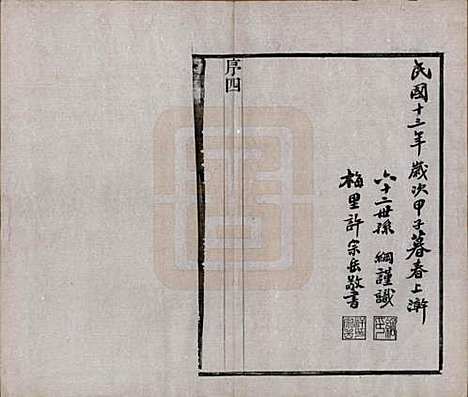 民國十三年歲次甲子暮春上澣
六十二世孫 綱謹識
梅里許宗岳敬書
序四